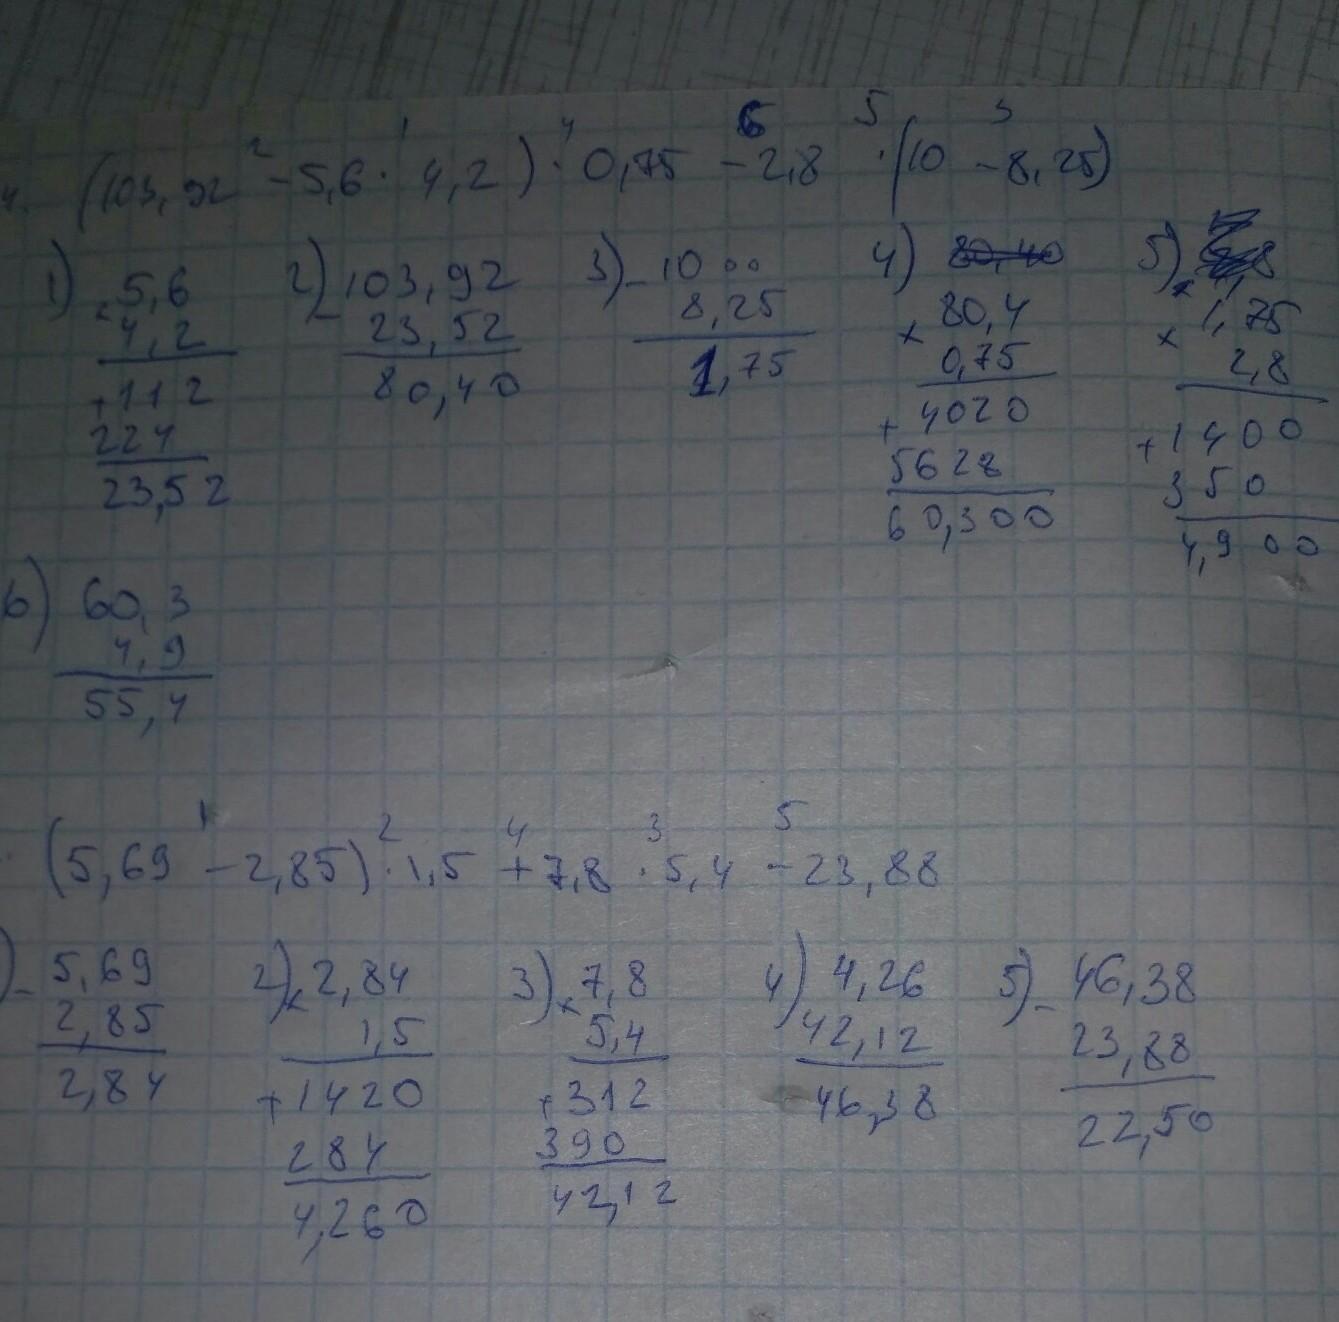 4. (103,92 - 5,6 · 4,2) · 0,75 - 2,8 · (10 - 8,25)
2 1 4 6 5 3
1) × 5,6
4,2
+112
224
23,52
2) - 103,92
23,52
80,40
3) - 10 00
8,25
1,75
4) 80,40
× 80,4
0,75
+ 4020
5628
60,300
5) × 1,75
× 2,8
+ 1400
350
4,900
6) 60,3
4,9
55,4
1 2 4 3 5
(5,69 - 2,85) · 1,5 + 7,8 · 5,4 - 23,88
) - 5,69
2,85
2,84
2) × 2,84
1,5
+ 1420
284
4,260
3) × 7,8
5,4
+ 312
390
42,12
4) 4,26
42,12
46,38
5) - 46,38
23,88
22,50